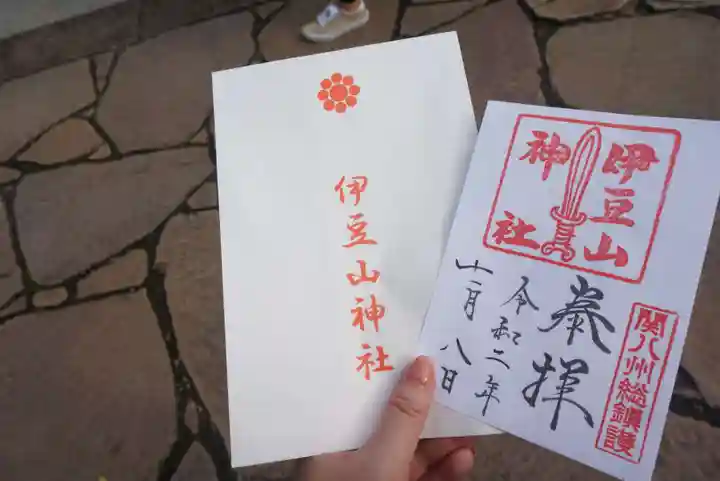 伊豆山神社
伊豆山
神社
関八州総鎮護
奉拝
令和二年
十一月八日